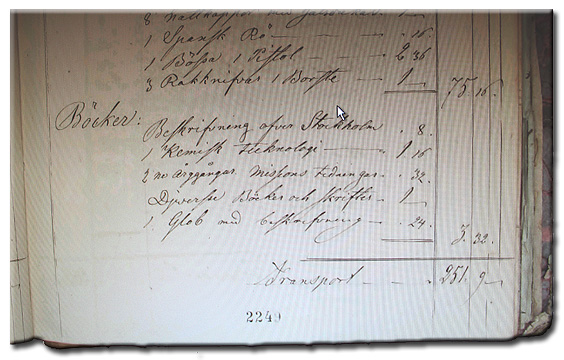 8 Nattkappor med
1 Spansk Rö — . 16.
1 Bössa 1 Pistol — 2 36
3 Rakknifvar 1 Borste — 1 — 75. 16.
Böcker: Beskrifvning öfver Stockholm . 8.
1 Kemisk Technologi — 1 16
2 ne Årggångar Missions tidningar . 32.
Diverse Böcker och Skrifter — 1 —
1. Glob med beskrifvning — . 24. 3. 32.
Transport — 251. 9
2249